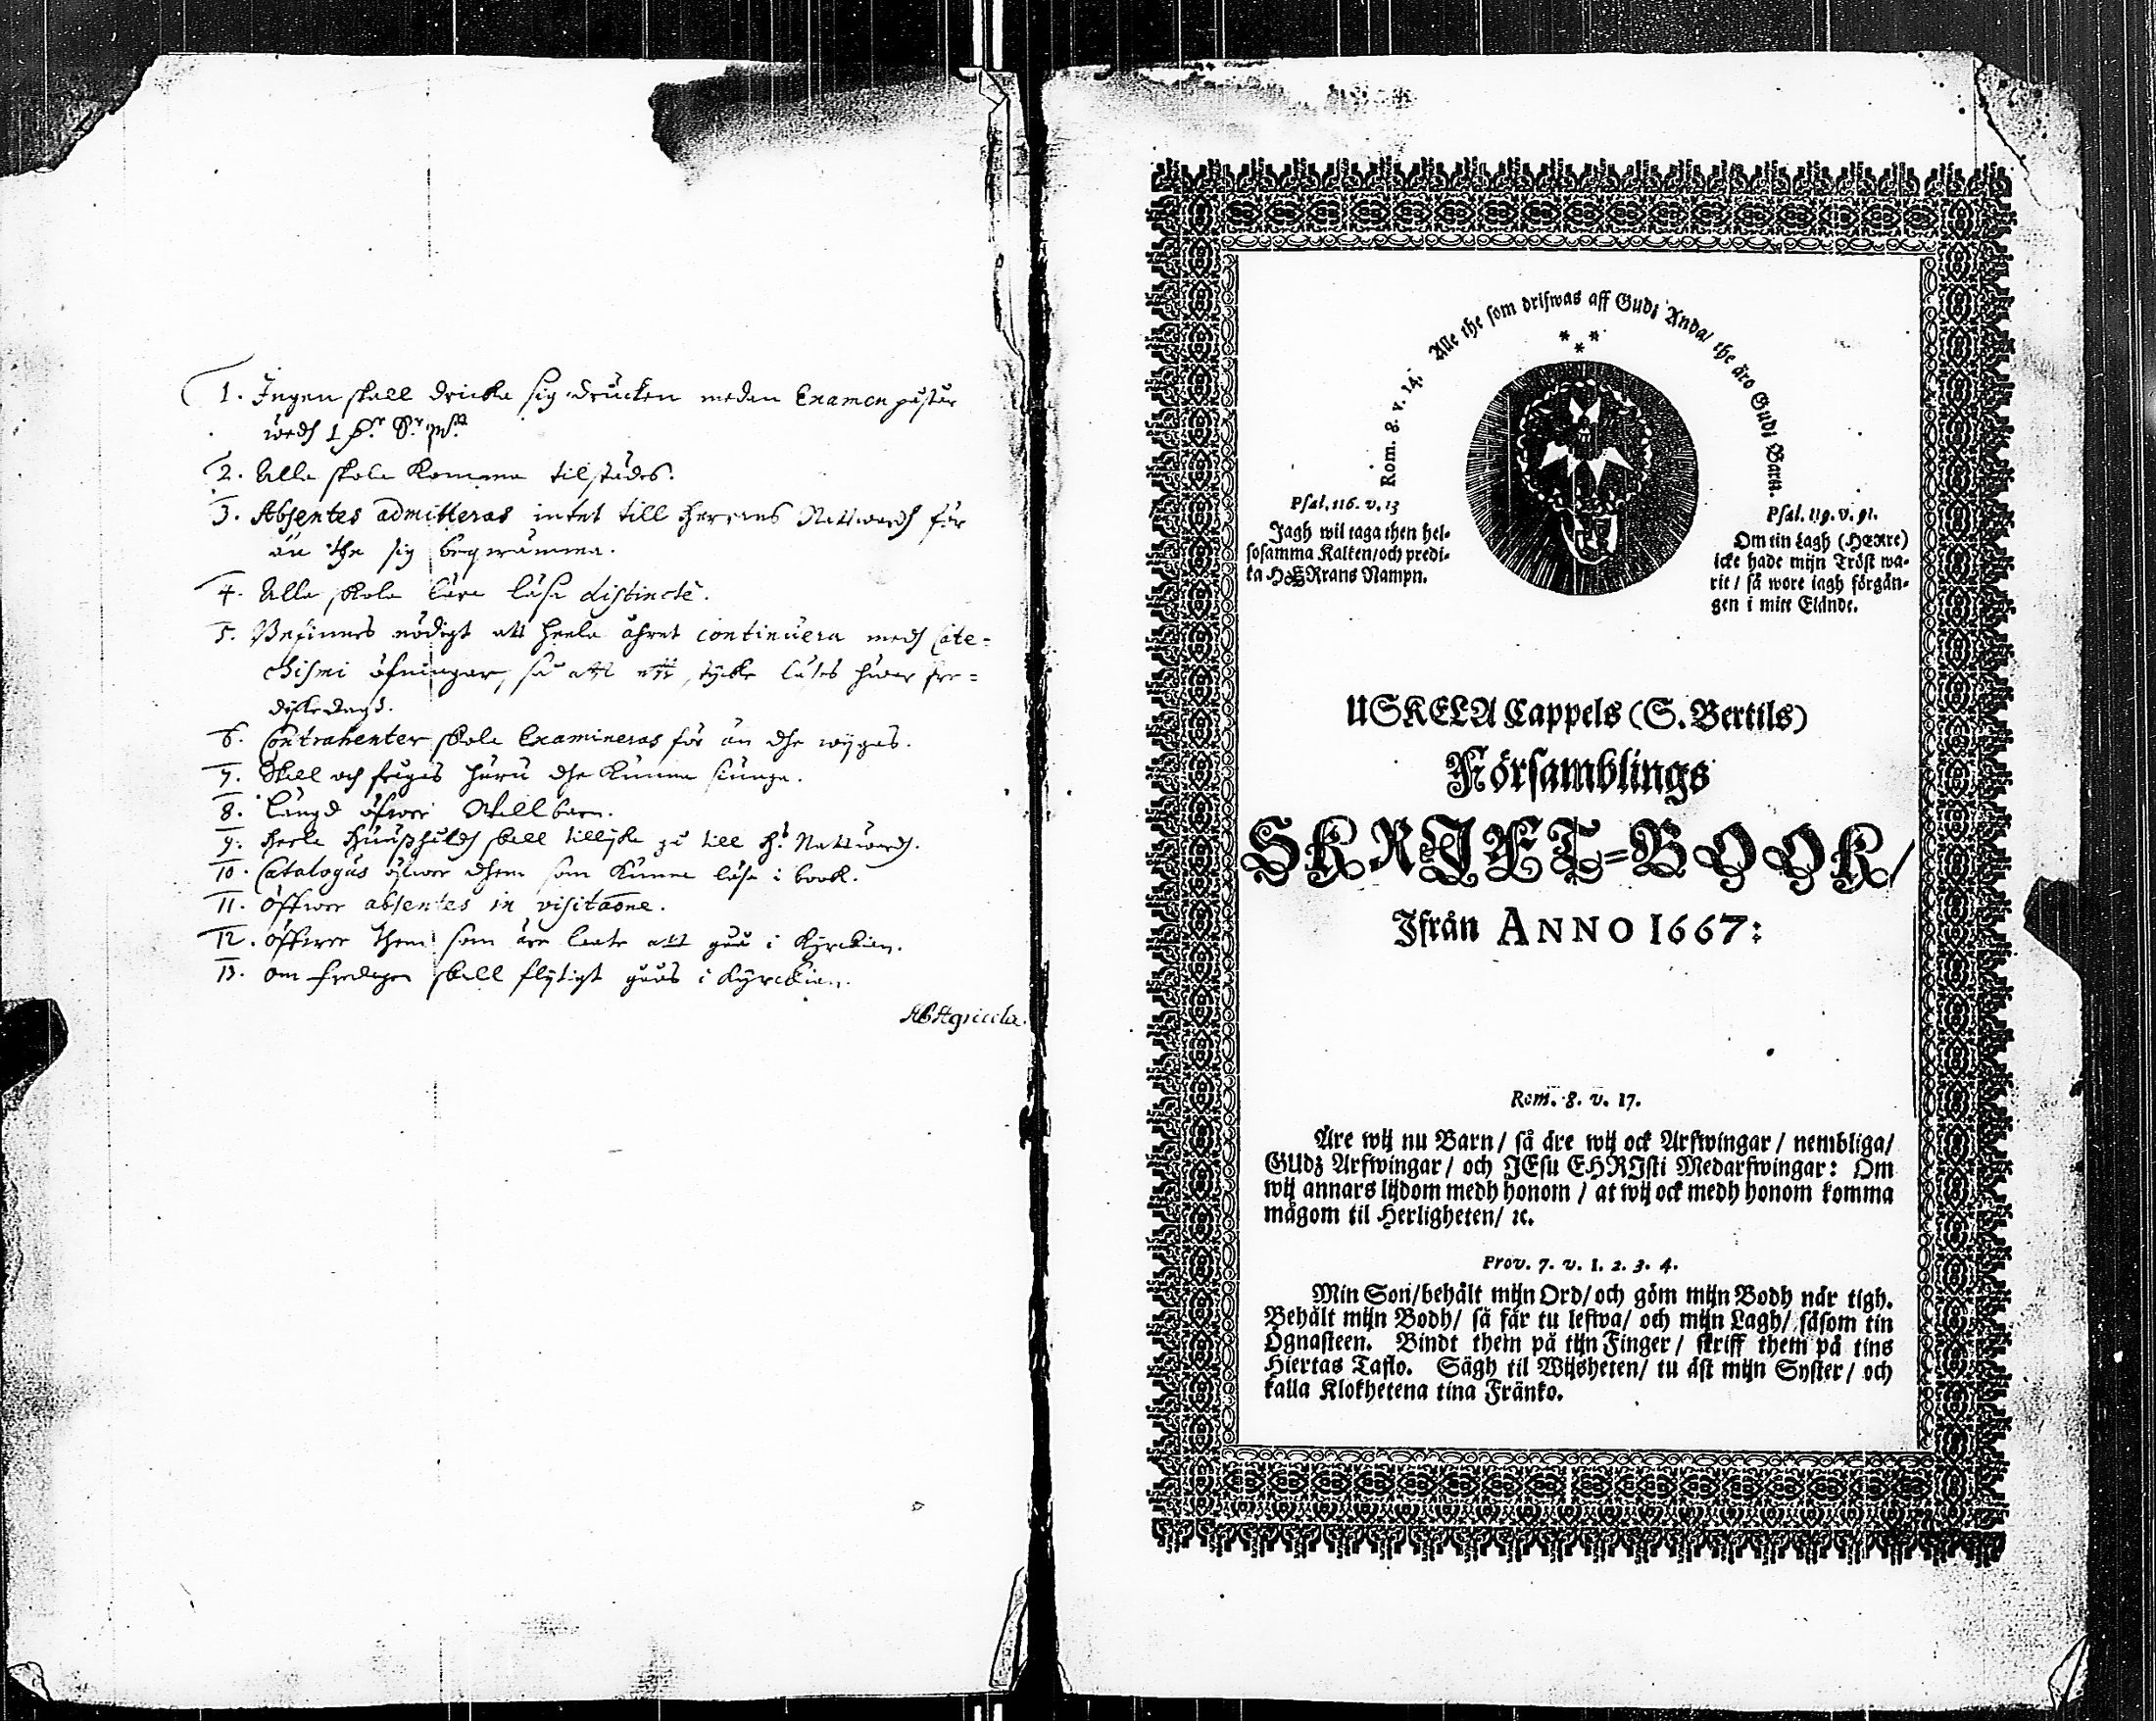 1. Ingen skall dricka sig drucken medan Examen påstår
wedh 1 
2. Alla skola komma tilstädes.
3. Absentes admitteras intet till Herrans Nattwardh för
än the sig beqwämma.
4. Alla skola lära läsa distinctè.
5. Befinnes nödigt att heela åhret continuera medh Cate-
chismi öfningar, så att ett stycke läses hwar pre-
dikedag.
6. Contrahenter skola Examineras för än dhe wijgas.
7. Skall och frågas huru dhe kunna siunga.
8. Längd öfwer Skallbarn.
9. Heela Huushåldh skall tillijka gå till H. Nattwardh.
10. Catalogus öfwer dhem som kunna läsa i book.
11. öffwer absentes in visitaōne.
12. öffwer them som äre laata att gåå i Kyrckian.
13. om fredagen skall flijtigt gåås i Kyrckian.
AB Agricola.
Rom. 8. v. 14. Alle the som drifwas aff Gudz Anda/ the äro Gudz Barn.
Psal. 116. v. 13
Jagh wil taga then hel-
sosamma Kalken/och predi-
ka HERrans Nampn.
Psal. 119. v. 91.
Om tin Lagh (HERre)
icke hade mijn Tröst wa-
rit / så wore iagh förgån-
gen i mitt Elände.
USKELA Cappels (S. Bertils)
Församblings
SKRIFT-BOOK/
Ifrån ANNO 1667:
Rom. 8. v. 17.
Äre wij nu Barn/ så äre wij ock Arfwingar / nembliga/
GUdz Arfwingar / och JEsu CHRIsti Medarfwingar: Om
wij annars lijdom medh honom / at wij ock medh honom komma
mågom til Herligheten/ ꝛc.
Prov. 7. v. 1. 2. 3. 4.
Min Son/behålt mijn Ord/ och göm mijn Bodh när tigh.
Behålt mijn Bodh/ så får tu lefwa/ och mijn Lagh/ såsom tin
Ögnasteen. Bindt them på tijn Finger / skriff them på tins
Hiertas Taflo. Sägh til Wijsheten/ tu äst mijn Syster / och
kalla Klokhetena tina Fränko.